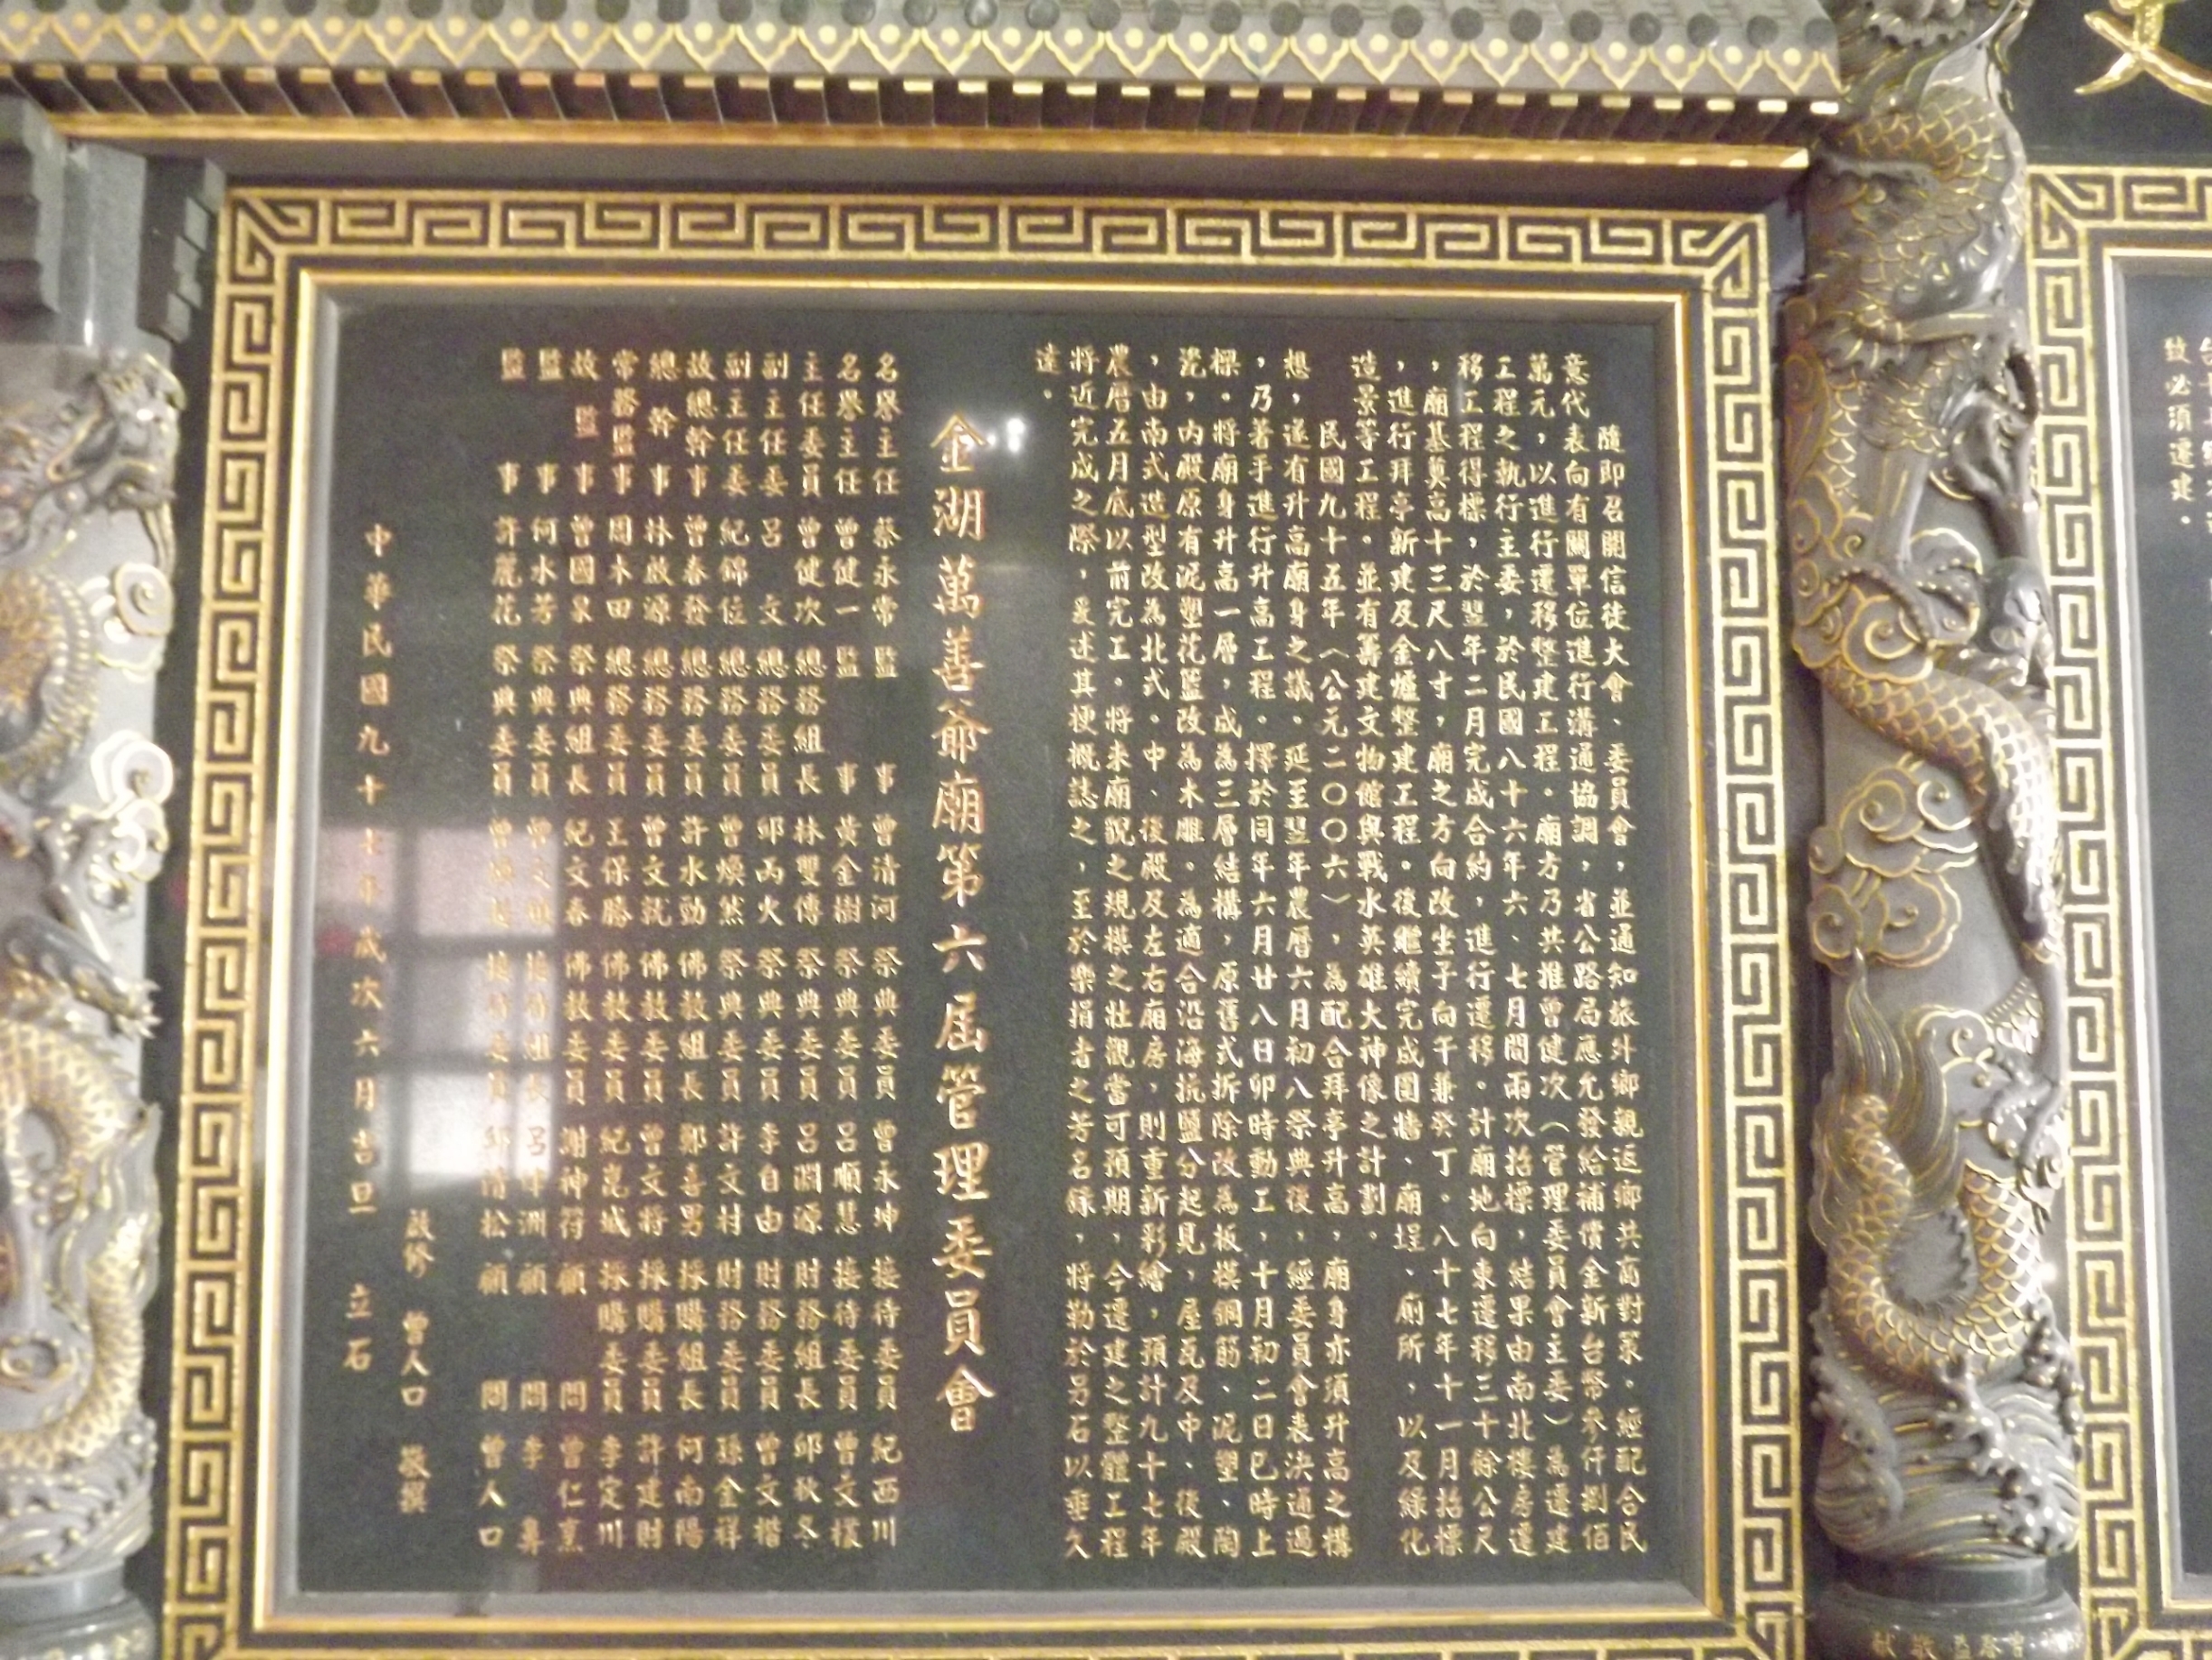 隨即召開信徒大會、委員會，並通知旅外鄉親返鄉共商對策，經配合民
意代表向有關單位進行溝通協調，省公路局應允發給補償金新台幣參仟捌佰
萬元，以進行遷移整建工程。廟方乃共推曾健次（管理委員會主委）為遷建
工程之執行主委，於民國八十六年六、七月間兩次招標，結果由南北樓房遷
移工程得標，於翌年二月完成合約，進行遷移。計廟地向東遷移三十餘公尺
，廟基奠高十三尺八寸，廟之方向改坐子向午兼癸丁。八十七年十一月招標
，進行拜亭新建及金爐整建工程。後繼續完成圍牆、廟埕、廁所，以及綠化
造景等工程。並有籌建文物館與戰水英雄大神像之計劃。
民國九十五年（公元二〇〇六），為配合拜亭升高，廟身亦須升高之構
想，遂有升高廟身之議。延至翌年農曆六月初八祭典後，經委員會表決通過
，乃著手進行升高工程。擇於同年六月廿八日卯時動工，十月初二日巳時上
樑。將廟身升高一層，成為三層結構，原舊式拆除改為板模鋼筋、泥塑、陶
瓷，內殿原有泥塑花籃改為木雕。為適合沿海抗鹽分起見，屋瓦及中、後殿
，由南式造型改為北式。中、後殿及左右廂房，則重新彩繪，預計九十七年
農曆五月底以前完工。將來廟貌之規模之壯觀當可預期，今遷建之整體工程
將近完成之際，爰述其梗概誌之，至於樂捐者之芳名錄，將勒於另石以垂久
遠。
金湖萬善爺廟第六屆管理委員會
名譽主任 蔡永常 監事 曾清河 祭典委員 曾永坤 接待委員 紀西川
名譽主任 曾健一 監事 黃金樹 祭典委員 呂順慧 接待委員 曾文檨
主任委員 曾健次 總務組長 林雙傳 祭典委員 呂淵源 財務組長 邱秋冬
副主任委 呂文 總務委員 邱丙火 祭典委員 李自由 財務委員 曾文楷
副主任委 紀錦位 總務委員 曾煥然 祭典委員 許文村 財務委員 孫金祥
故總幹事 曾春發 總務委員 許水勁 佛教組長 鄭喜男 採購組長 何南陽
總幹事 林啟源 總務委員 曾文就 佛教委員 曾文將 採購委員 許建財
常務監事 周木田 總務委員 王保勝 佛教委員 紀崑城 採購委員 李定川
故監事 曾國泉 祭典組長 紀文春 佛教委員 謝神符 顧問 曾仁烹
監事 何水芳 祭典委員 曾文 接待組長 呂 洲 顧問 李
監事 許麗花 祭典委員 曾 接待委員 邱清松 顧問 曾人口
啟修 曾人口 敬撰
中華民國九十七年歲次六月吉旦 立石
致必須遷建。